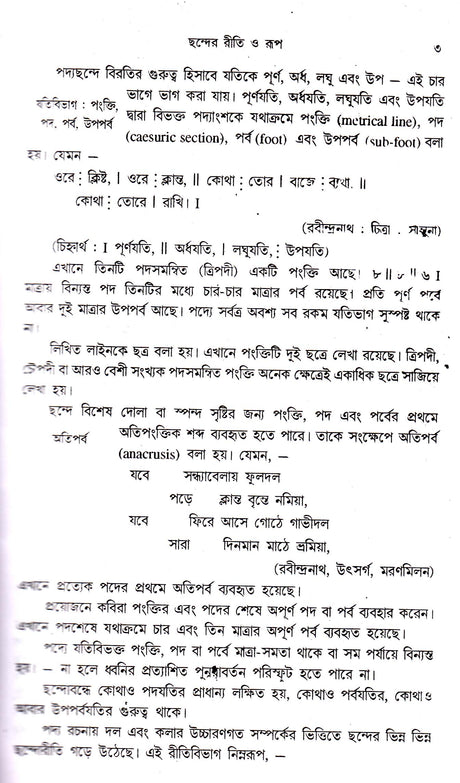 ছন্দের রীতি ও রূপ ৩
পদ্যছন্দে বিরতির গুরুত্ব হিসাবে যতিকে পূর্ণ, অর্ধ, লঘু এবং উপ — এই চার
ভাগে ভাগ করা যায়। পূর্ণযতি, অর্ধযতি, লঘুযতি এবং উপযতি
যতিবিভাগ : পংক্তি,
পদ, পর্ব, উপপর্ব
দ্বারা বিভক্ত পদ্যাংশকে যথাক্রমে পংক্তি (metrical line), পদ
(caesuric section), পর্ব (foot) এবং উপপর্ব (sub-foot) বলা
হয়। যেমন —
ওরে ⋮ ক্লিষ্ট, | ওরে ⋮ ক্লান্ত, || কোথা ⋮ তোর | বাজে ⋮ ব্যথা. ||
কোথা ⋮ তোরে | রাখি। I
(রবীন্দ্রনাথ : চিত্রা . সান্ত্বনা)
(চিহ্নার্থ : I পূর্ণযতি, || অর্ধযতি, | লঘুযতি, ⋮ উপযতি)
এখানে তিনটি পদসমন্বিত (ত্রিপদী) একটি পংক্তি আছে। ৮ || ৮ || ৬ I
মাত্রায় বিন্যস্ত পদ তিনটির মধ্যে চার-চার মাত্রার পর্ব রয়েছে। প্রতি পূর্ণ পর্বে
আবার দুই মাত্রার উপপর্ব আছে। পদ্যে সর্বত্র অবশ্য সব রকম যতিভাগ সুস্পষ্ট থাকে
না।
লিখিত লাইনকে ছত্র বলা হয়। এখানে পংক্তিটি দুই ছত্রে লেখা রয়েছে। ত্রিপদী,
চৌপদী বা আরও বেশী সংখ্যক পদসমন্বিত পংক্তি অনেক ক্ষেত্রেই একাধিক ছত্রে সাজিয়ে
লেখা হয়।
ছন্দে বিশেষ দোলা বা স্পন্দ সৃষ্টির জন্য পংক্তি, পদ এবং পর্বের প্রথমে
অতিপর্ব
অতিপংক্তিক শব্দ ব্যবহৃত হতে পারে। তাকে সংক্ষেপে অতিপর্ব
(anacrusis) বলা হয়। যেমন, —
যবে সন্ধ্যাবেলায় ফুলদল
পড়ে ক্লান্ত বৃন্তে নমিয়া,
যবে ফিরে আসে গোঠে গাভীদল
সারা দিনমান মাঠে ভ্রমিয়া,
(রবীন্দ্রনাথ, উৎসর্গ, মরণমিলন)
এখানে প্রত্যেক পদের প্রথমে অতিপর্ব ব্যবহৃত হয়েছে।
প্রয়োজনে কবিরা পংক্তির এবং পদের শেষে অপূর্ণ পদ বা পর্ব ব্যবহার করেন।
এখানে পদশেষে যথাক্রমে চার এবং তিন মাত্রার অপূর্ণ পর্ব ব্যবহৃত হয়েছে।
পদ্যে যতিবিভক্ত পংক্তি, পদ বা পর্বে মাত্রা-সমতা থাকে বা সম পর্যায়ে বিন্যস্ত
হয়। — না হলে ধ্বনির প্রত্যাশিত পুনরাবর্তন পরিস্ফুট হতে পারে না।
ছন্দোবন্ধে কোথাও পদযতির প্রাধান্য লক্ষিত হয়, কোথাও পর্বযতির, কোথাও
আবার উপপর্বযতির গুরুত্ব থাকে।
পদ্য রচনায় দল এবং কলার উচ্চারণগত সম্পর্কের ভিত্তিতে ছন্দের ভিন্ন ভিন্ন
ছন্দোরীতি গড়ে উঠেছে। এই রীতিবিভাগ নিম্নরূপ, —